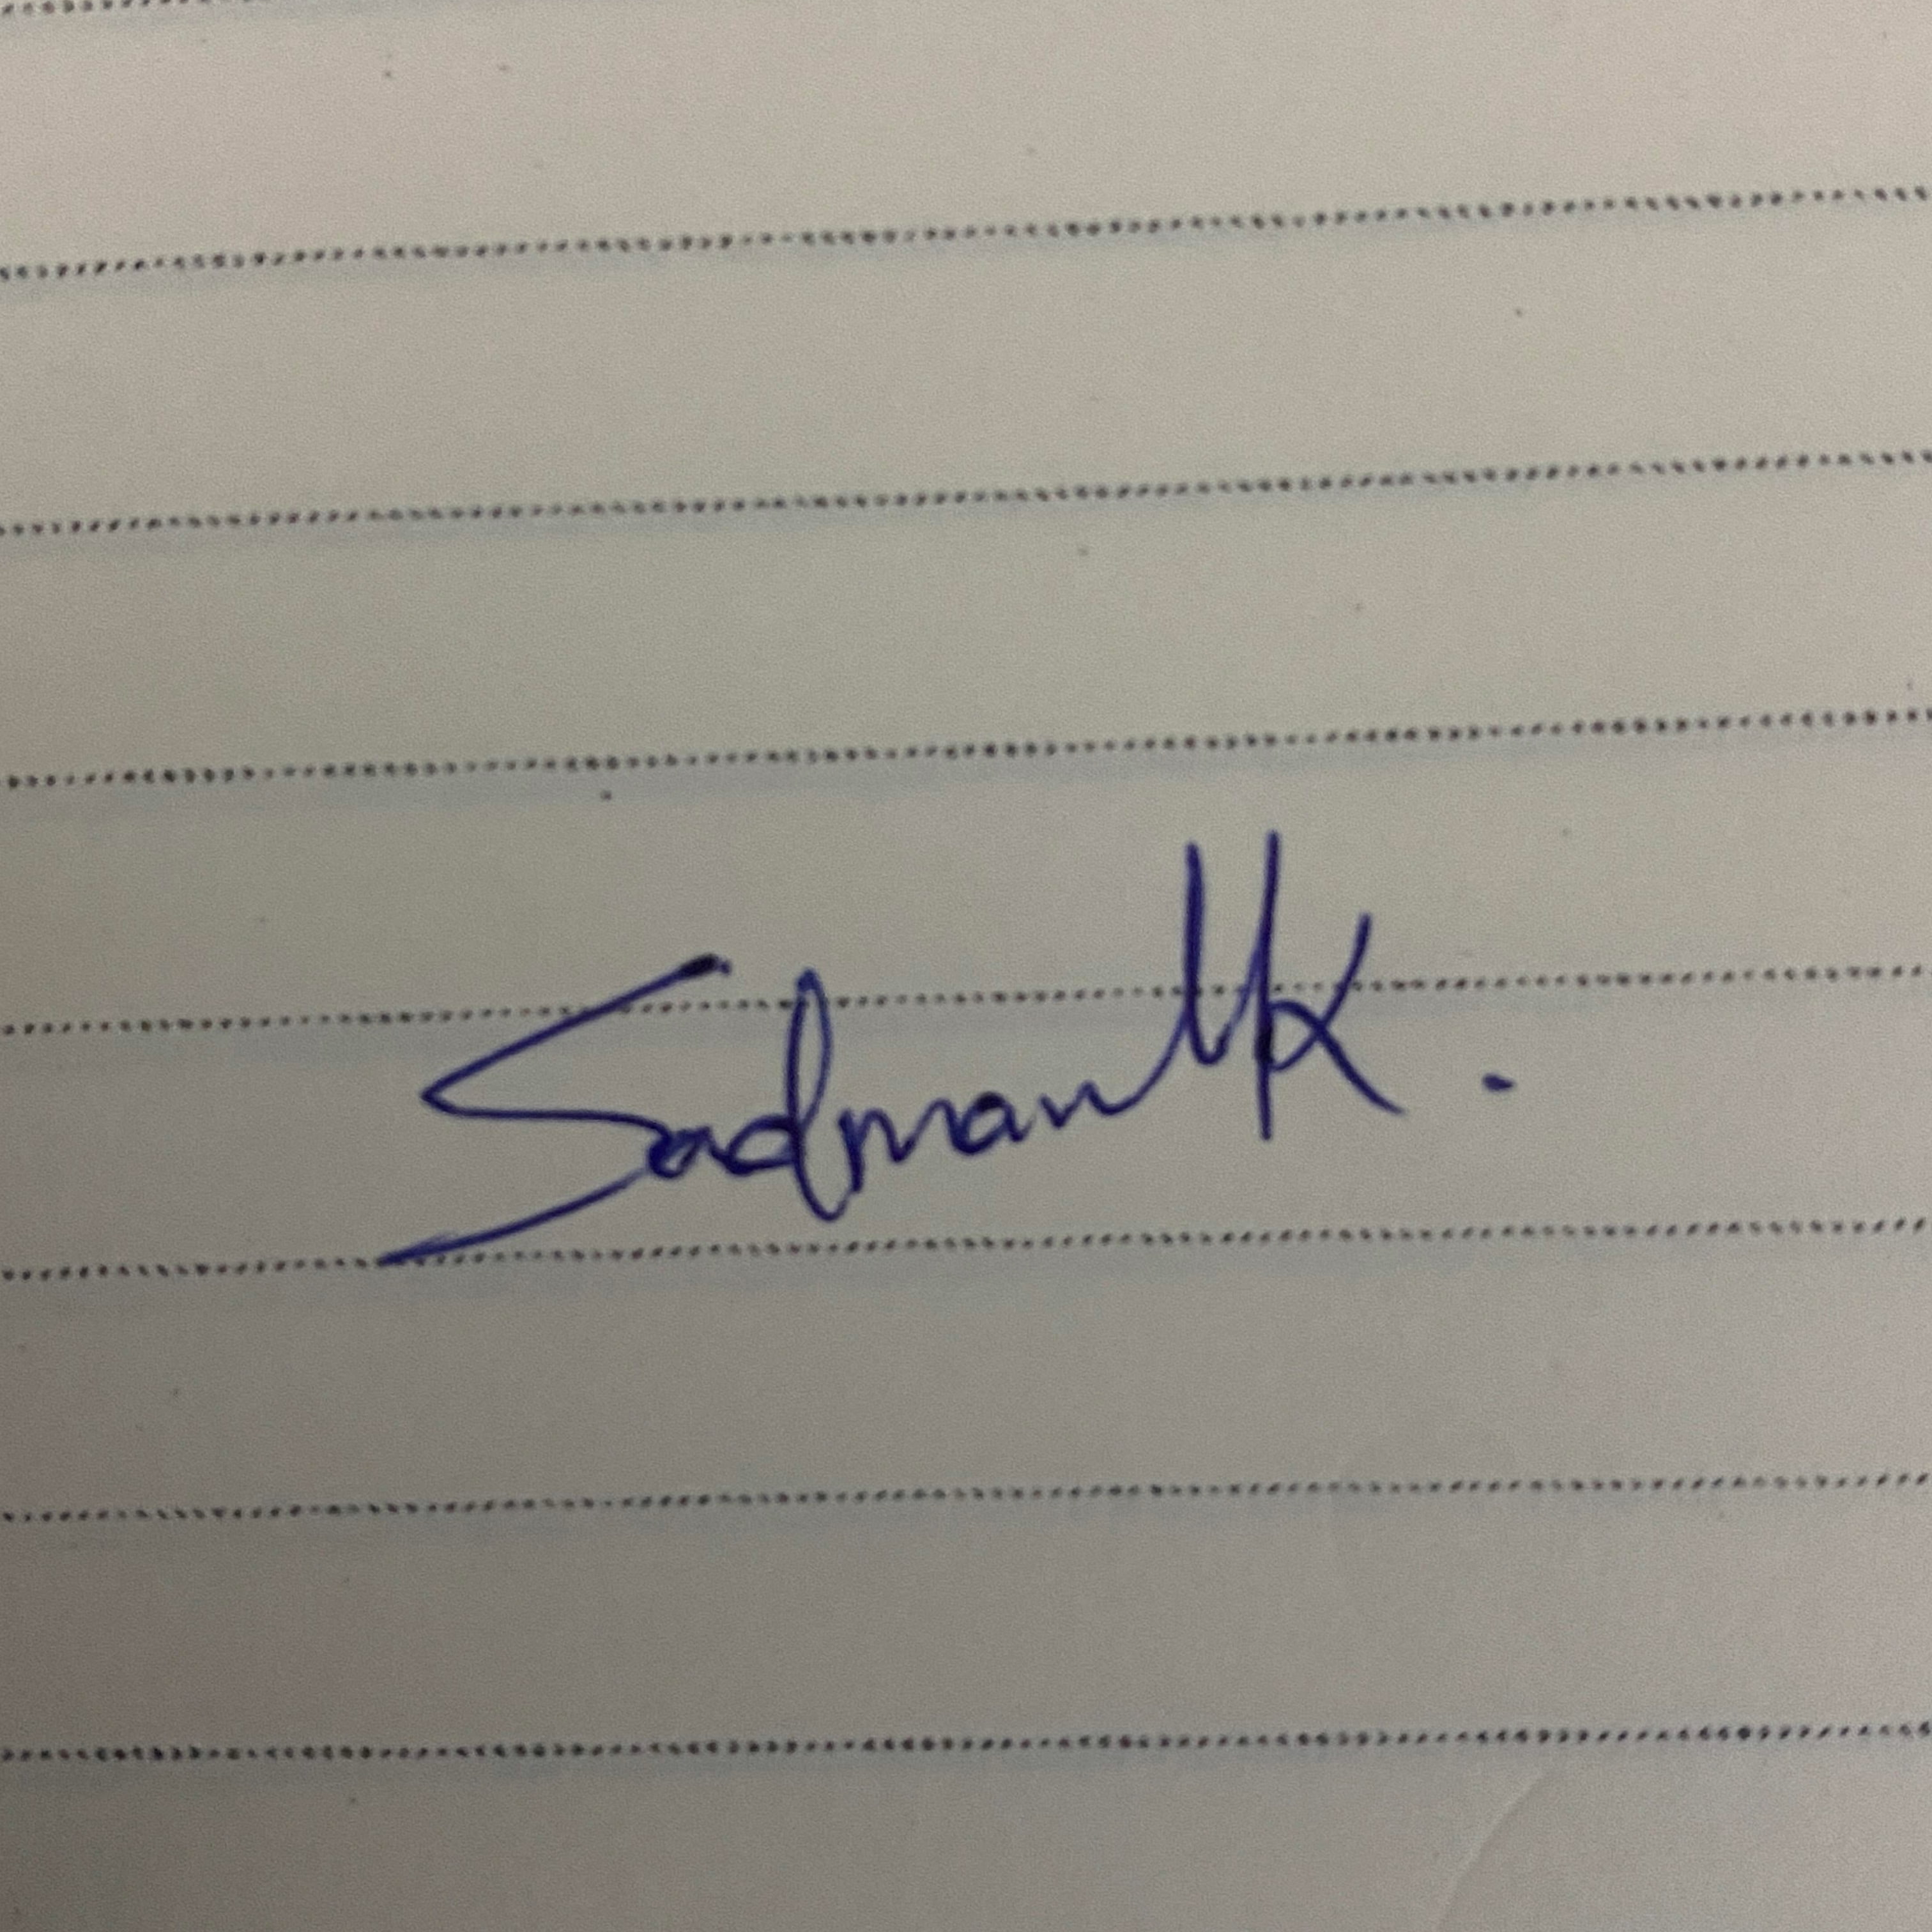 Sadman K.